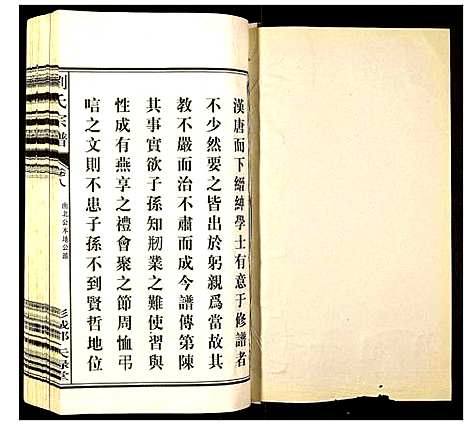 漢唐而下縉紳學士有意于修譜者
不少然要之皆出於躬親為當故其
教不嚴而治不肅而成今譜傳第陳
其事實欲子孫知刱業之難使習與
性成有燕享之禮會聚之節周恤弔
唁之文則不患子孫不到賢哲地位
劉氏宗譜
卷八
南北公本地公派
彭城郡 天祿堂